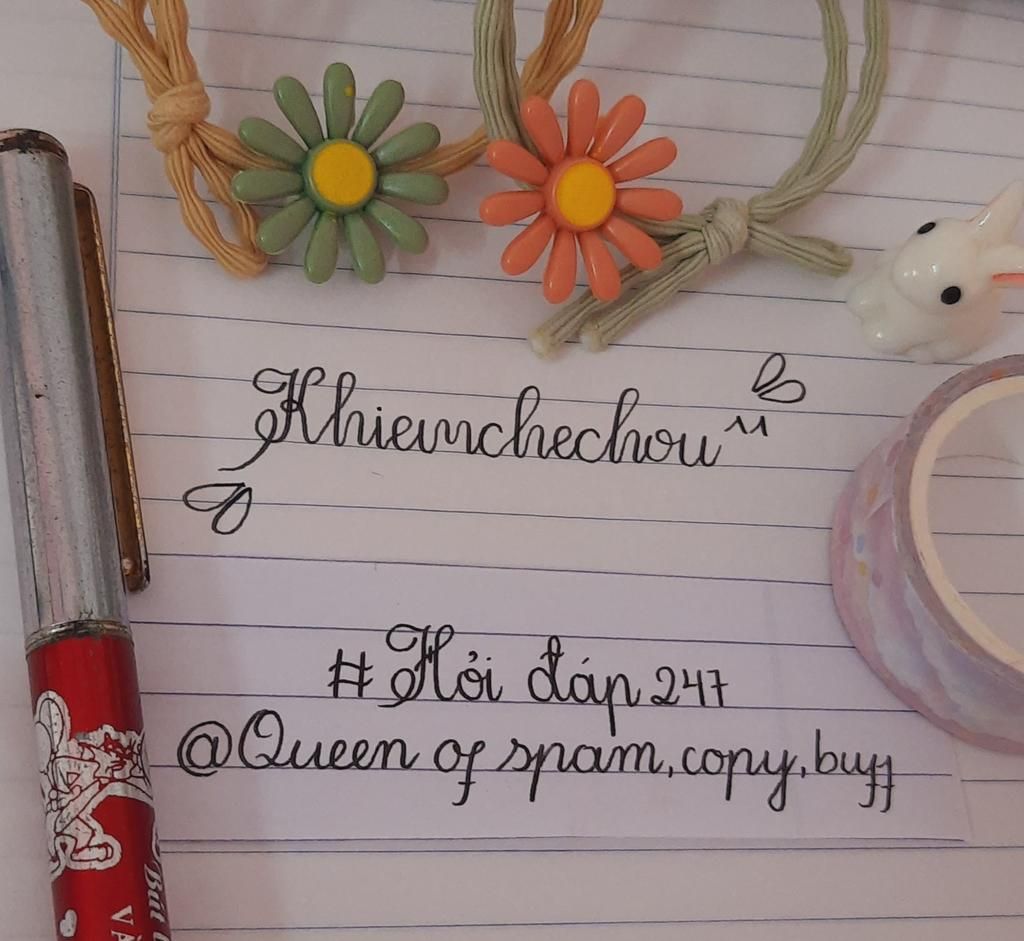 Khiemchechou^^
#Hỏi đáp 247
@Queen of spam, copy, buff
Bút